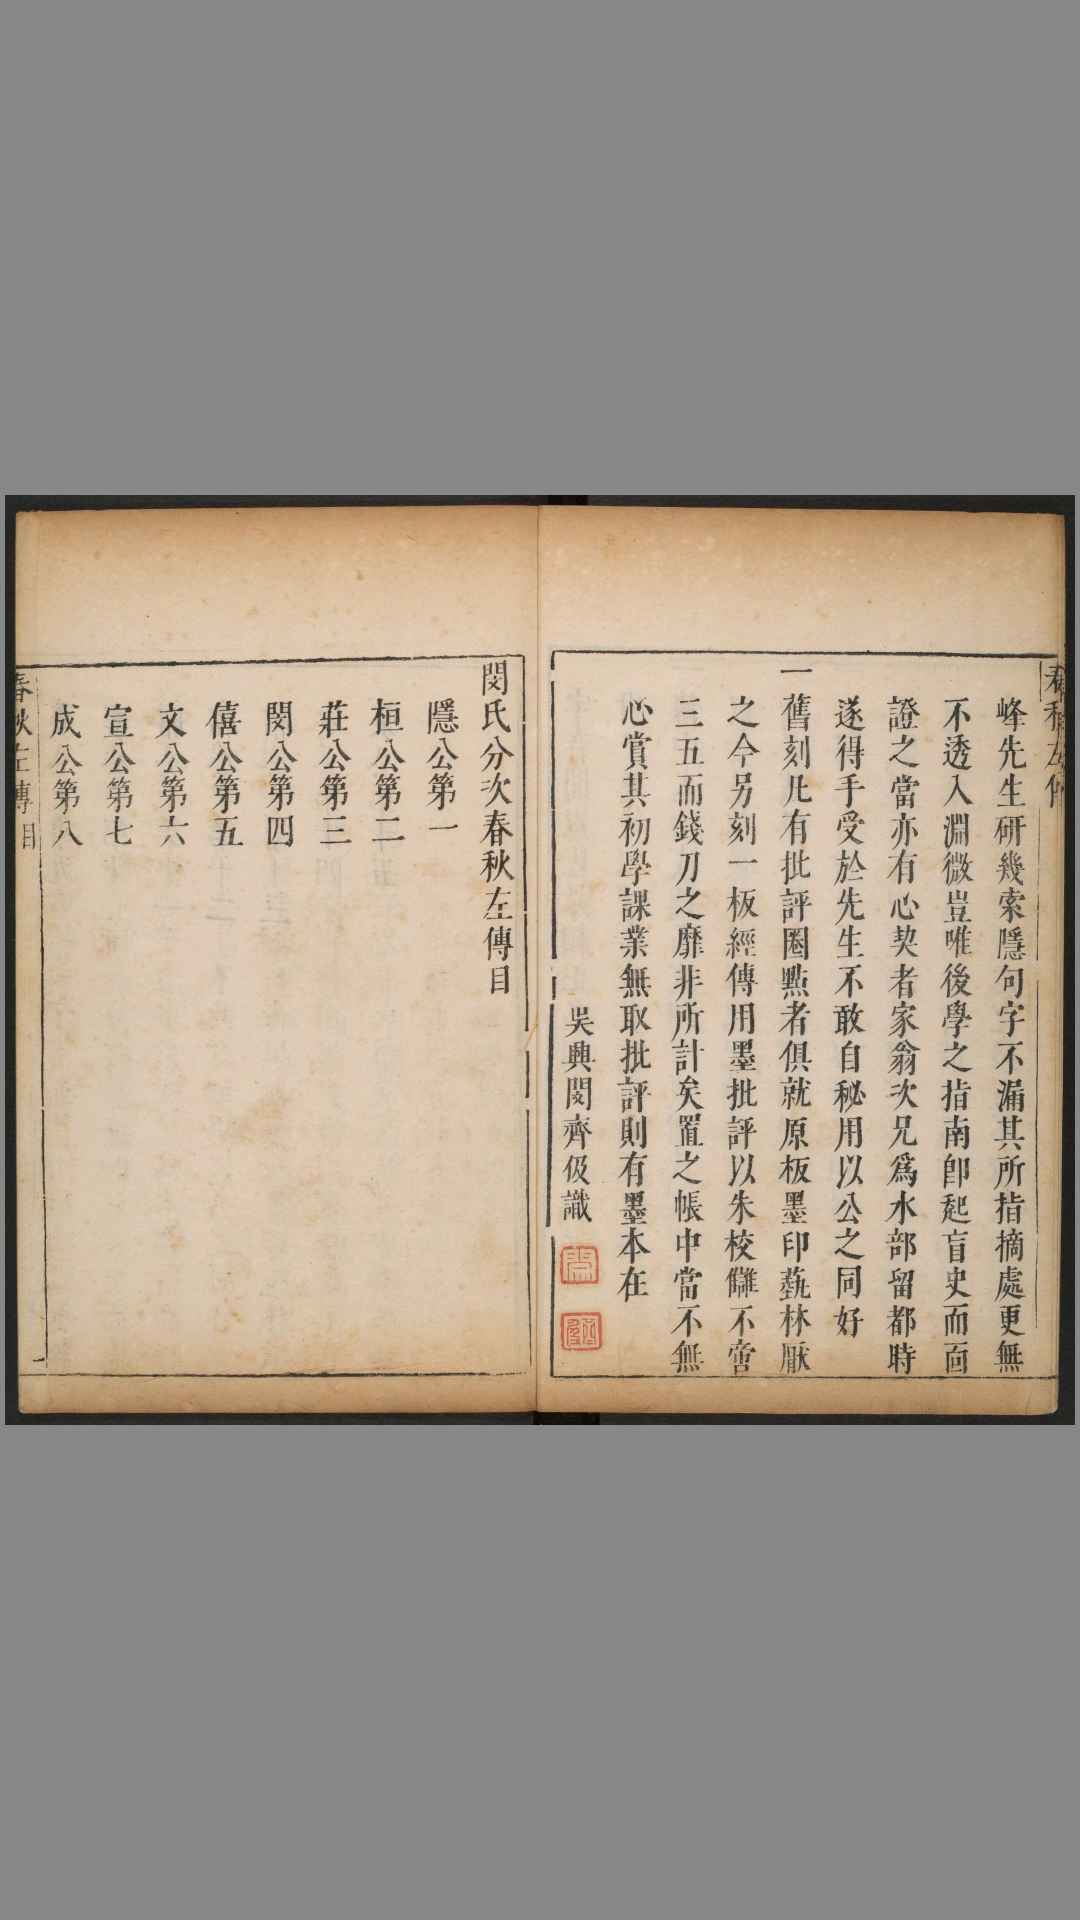 峰先生研幾索隱句字不漏其所指摘處更無
不透入淵微豈唯後學之指南卽起盲史而面
證之當亦有心契者家翁次兄爲水部留都時
遂得手受於先生不敢自秘用以公之同好
一舊刻凡有批評圈㸃者俱就原板墨印藝林厭
之今另刻一板經傳用墨批評以朱校讎不啻
三五而錢刀之靡非所計矣置之帳中當不無
心賞其初學課業無取批評則有墨本在
吳興閔齊伋識
閔氏分次春秋左傳目
隱公第一
桓公第二
莊公第三
閔公第四
僖公第五
文公第六
宣公第七
成公第八
春秋左傳目